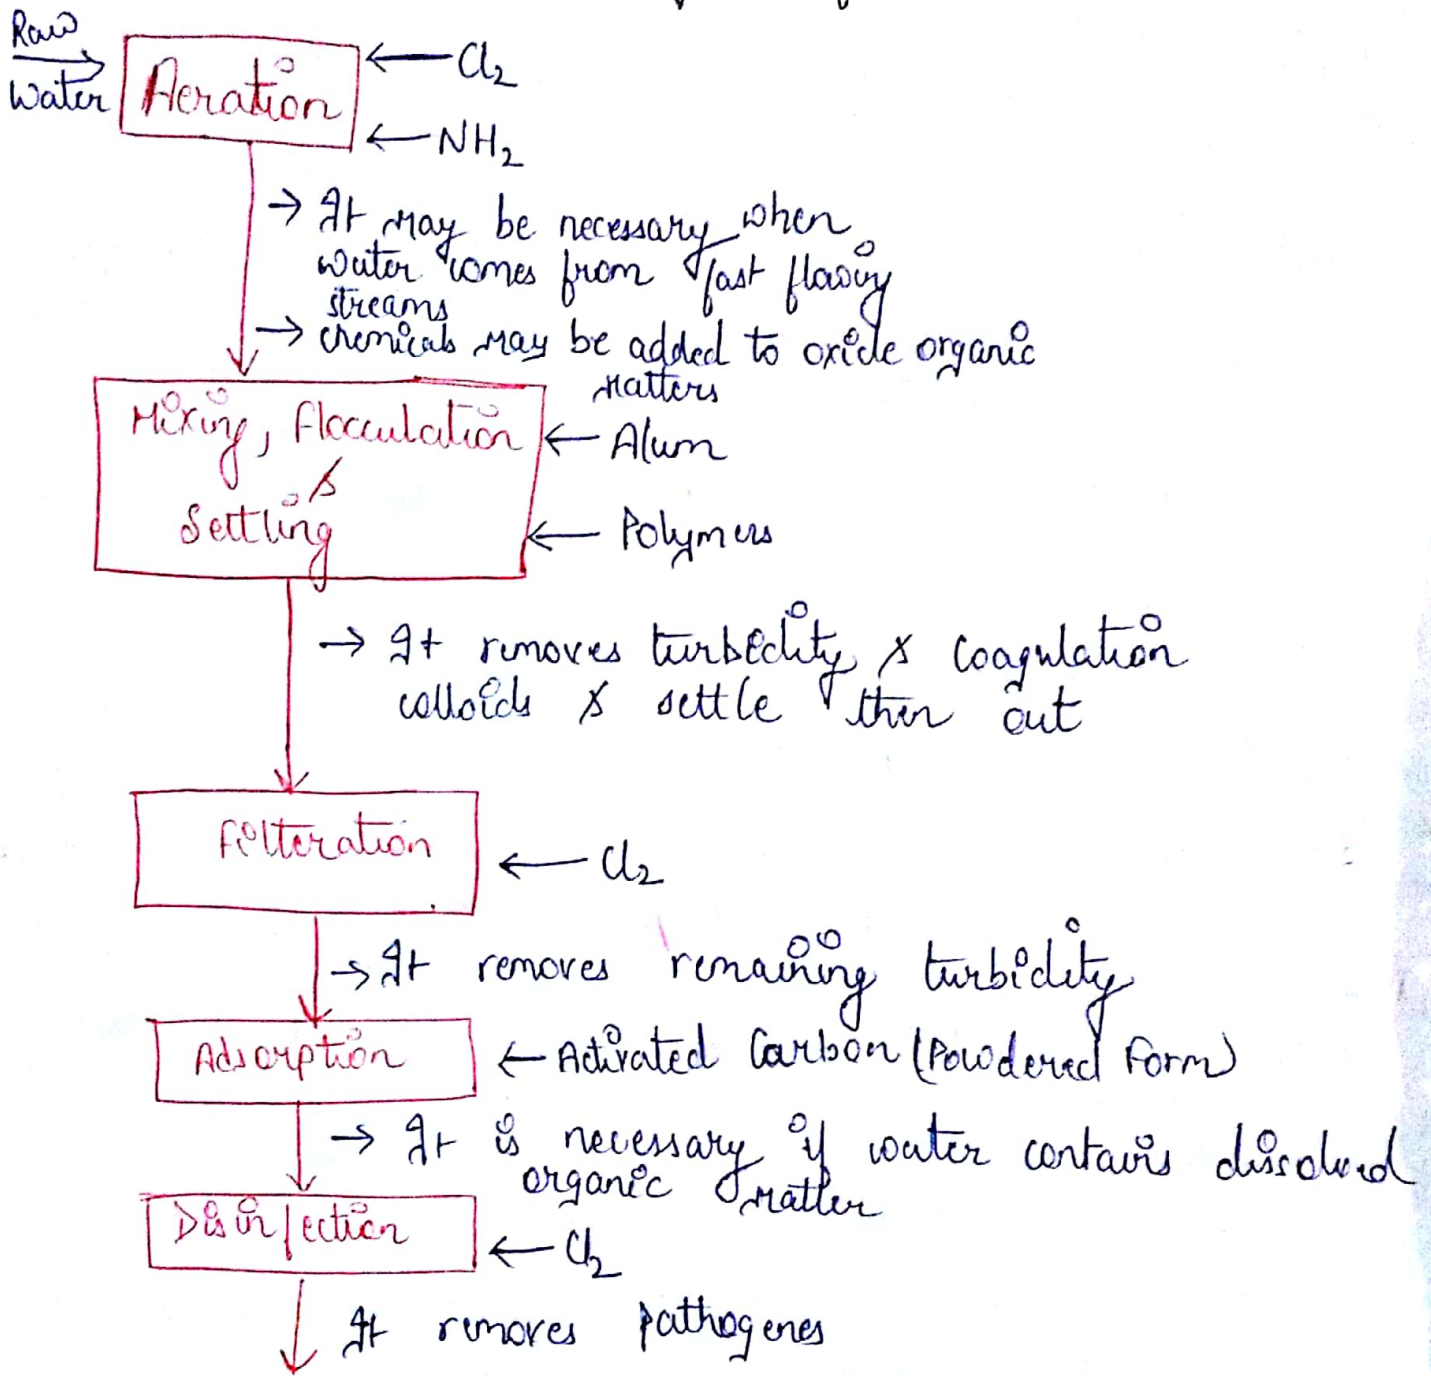 Raw
Water
Aeration
Cl2
NH2
→ It may be necessary when
water comes from fast flowing
streams
→ chemicals may be added to oxide organic
matters
Mixing, Flocculation
&
Settling
Alum
Polymers
→ It removes turbidity & coagulation
colloids & settle then out
Filteration
Cl2
→ It removes remaining turbidity
Adsorption
Activated Carbon (Powdered Form)
→ It is necessary if water contains dissolved
organic matter
Disinfection
Cl2
It removes pathogenes